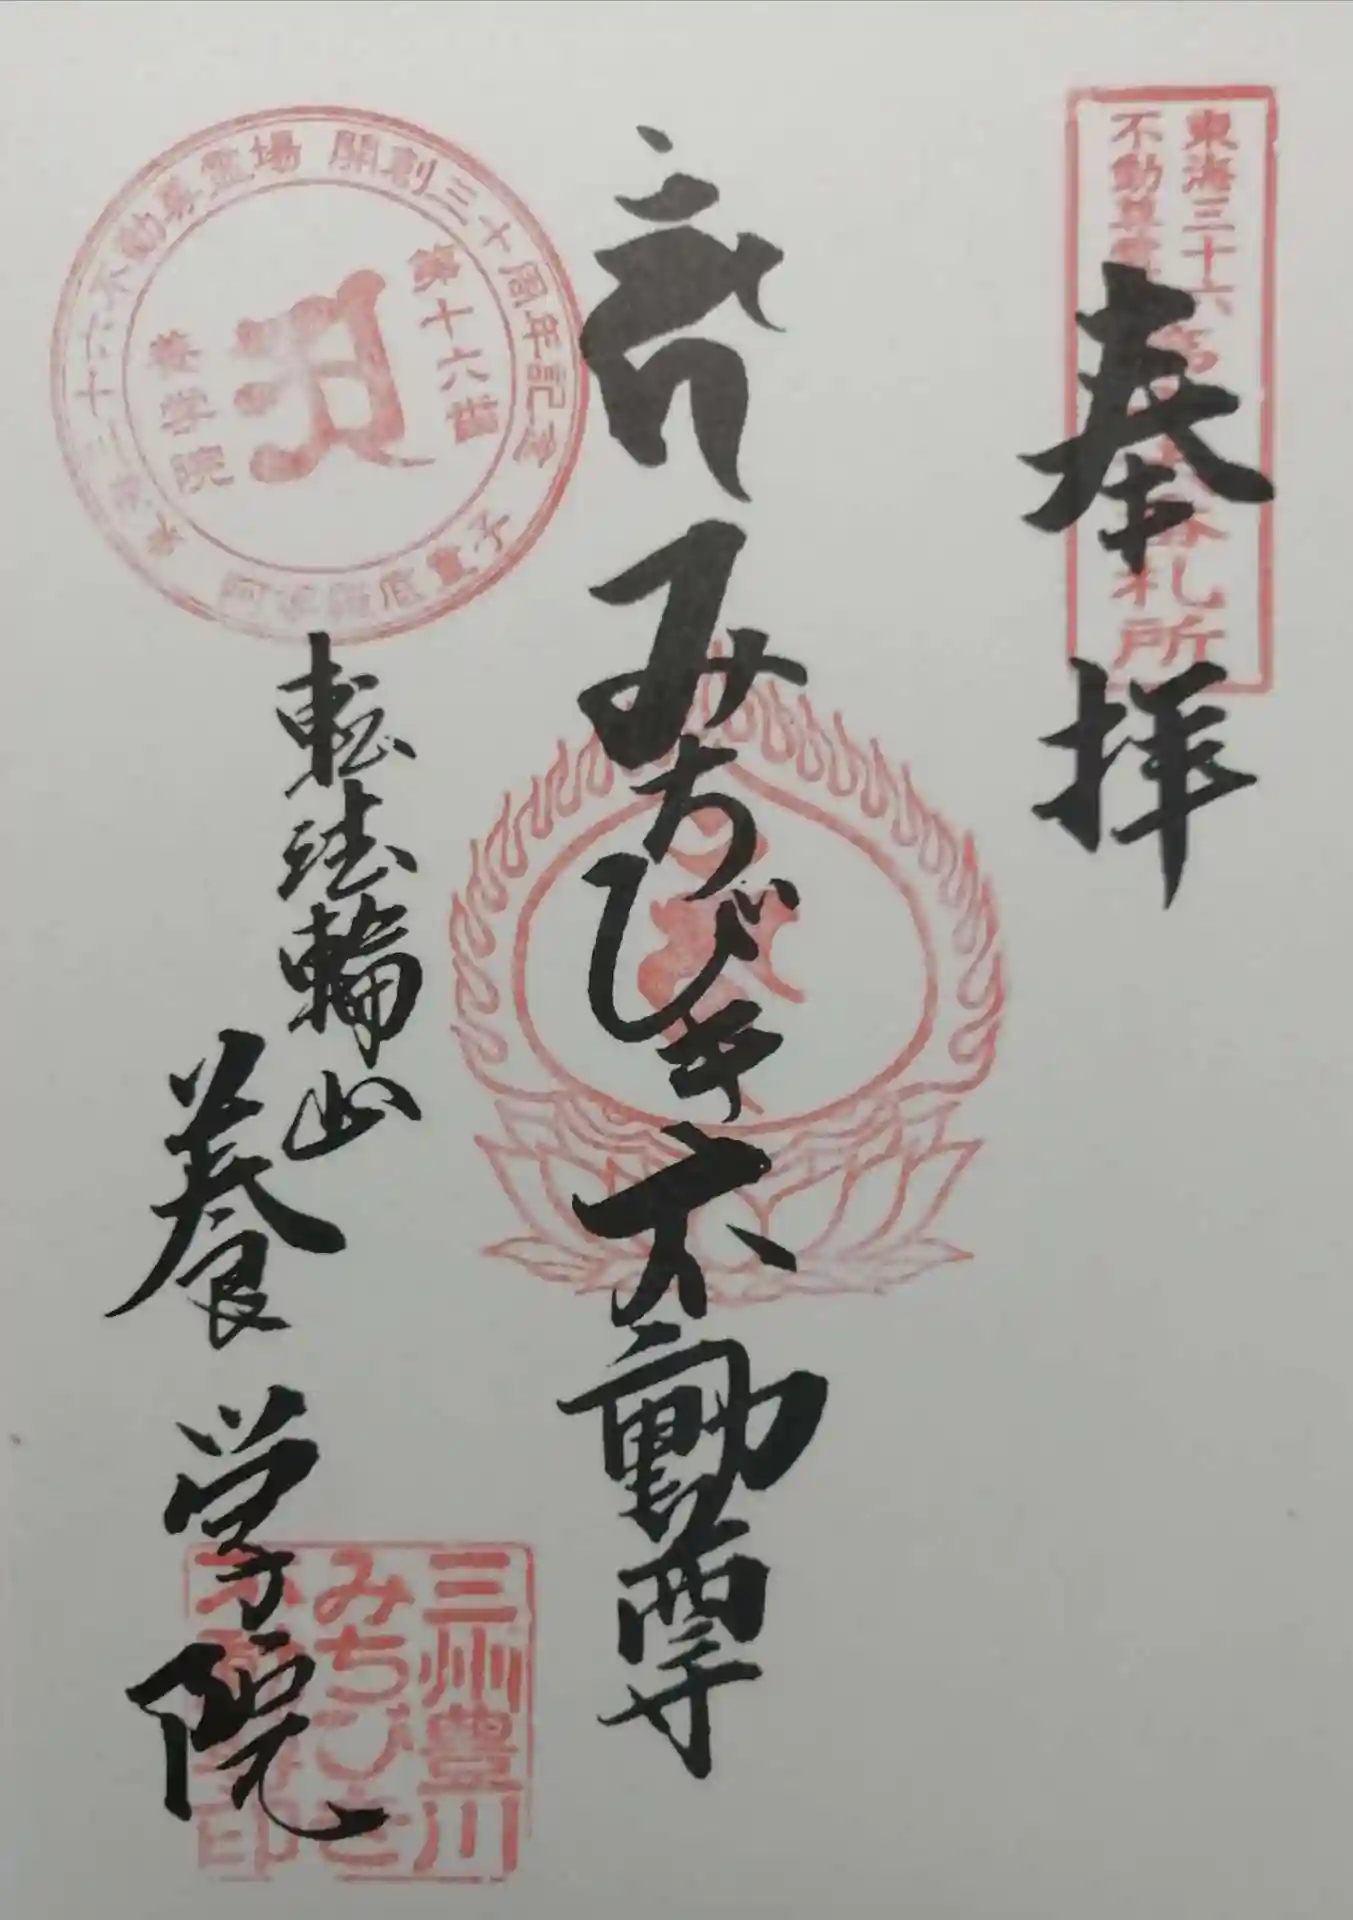 奉拝
東海三十六
不動尊霊
札所
みちびき不動尊
転法輪山
養学院
三十六不動尊霊場 開創三十周年記念
第十六番
養学院
童子
三州豊川
みちびき
不動尊印